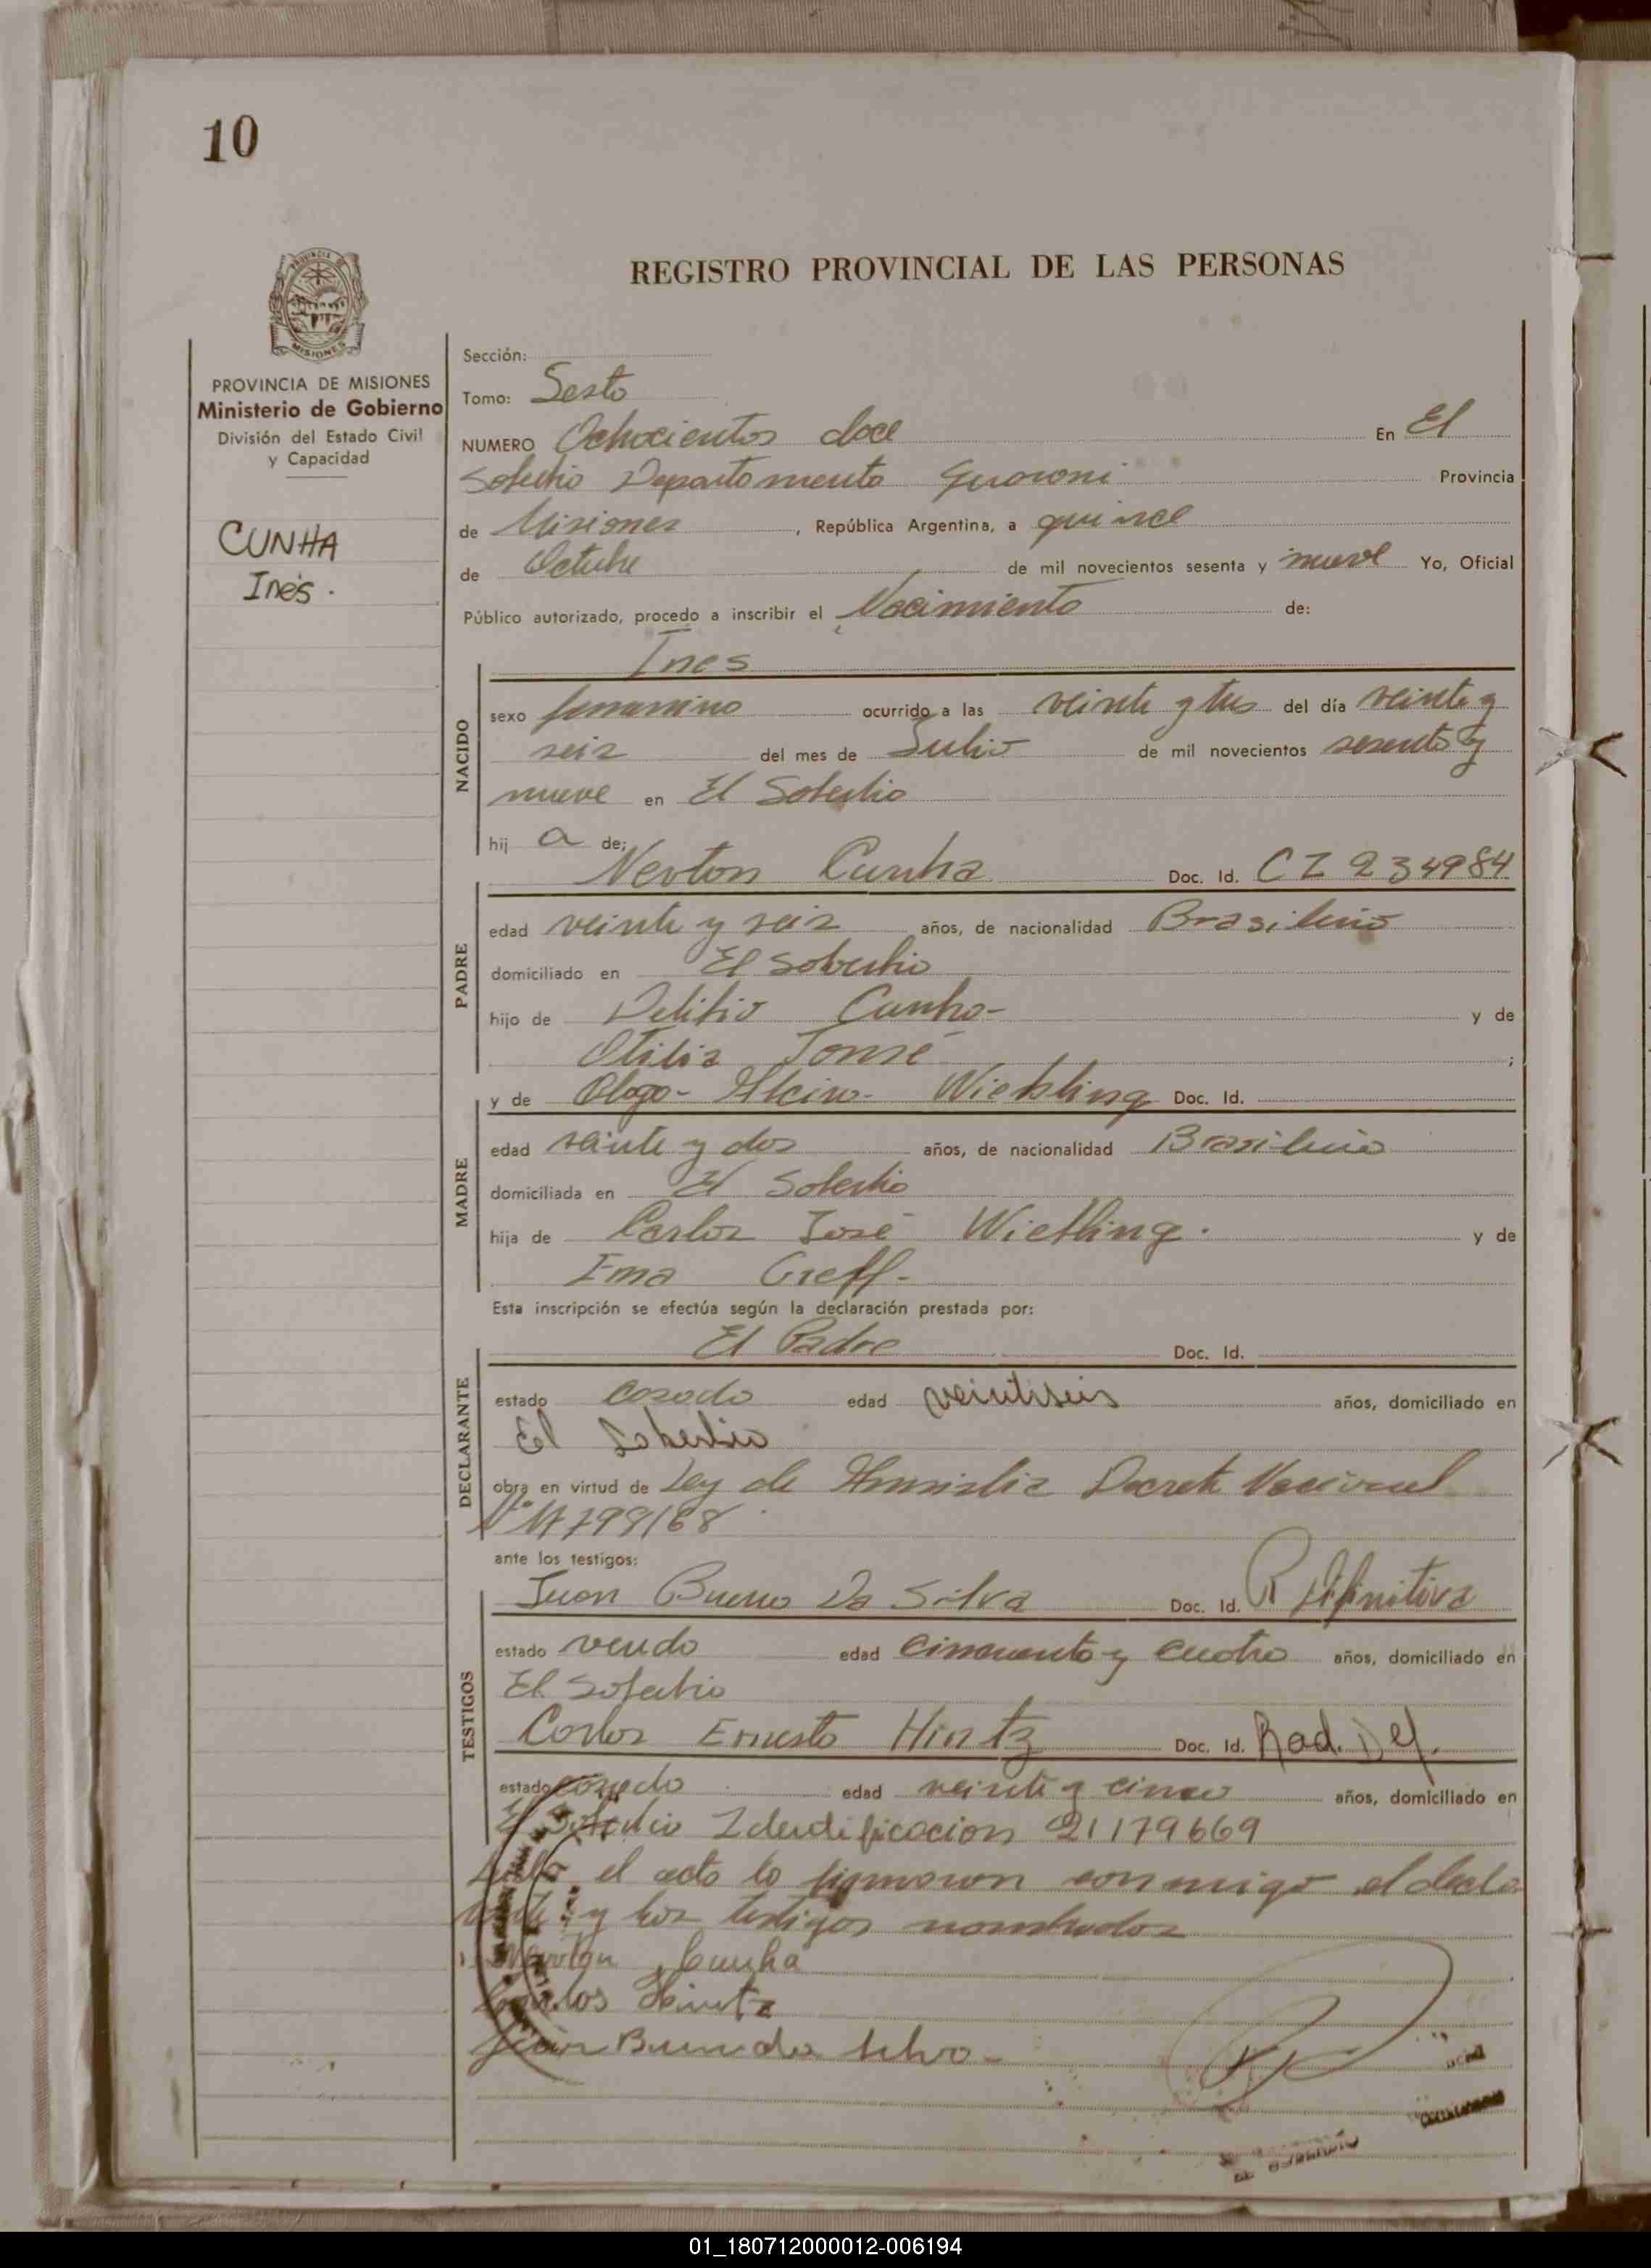 10
REGISTRO PROVINCIAL DE LAS PERSONAS
MISIONES
PROVINCIA DE MISIONES
Ministerio de Gobierno
División del Estado Civil
y Capacidad
CUNHA
Inés.
Sección:
Tomo: Sesto
NUMERO Ochocientos doce En El
Soberbio Departamento Guarani Provincia
de Misiones, República Argentina, a quince
de Octubre de mil novecientos sesenta y nueve Yo, Oficial
Público autorizado, procedo a inscribir el Nacimiento de:
Ines
NACIDO
sexo femenino ocurrido a las veinte y tres del día veinte y
seis del mes de Julio de mil novecientos sesenta y
nueve en El Soberbio
hij a de:
Nevton Cunha Doc. Id. CI 234984
PADRE
edad veinte y seis años, de nacionalidad Brasileña
domiciliado en El Soberbio
hijo de Cunha - y de
Otilia Tomé ;
y de Wiebbling Doc. Id.
MADRE
edad veinte y dos años, de nacionalidad Brasileña
domiciliada en El Soberbio
hija de Carlos José Wiebling. y de
Ema Greff.
Esta inscripción se efectúa según la declaración prestada por:
El Padre Doc. Id.
DECLARANTE
estado casado edad veintiseis años, domiciliado en
El Soberbio
obra en virtud de Ley de Amnistia Decreto Nacional
Nº 17799/68
ante los testigos:
Juan Bueno Da Silva Doc. Id. R Difinitiva
TESTIGOS
estado viudo edad cincuenta y cuatro años, domiciliado en
El Soberbio
Carlos Ernesto Hintz Doc. Id. Rad. Def.
estado casado edad veinte y cinco años, domiciliado en
El Soberbio Identificacion 21179669
el acta la firmaron conmigo el decla
rante y los testigos nombrados
Nevton Cunha
Carlos Hintz
Juan Bueno da Silva -
EL SOBERBIO
01_180712000012-006194